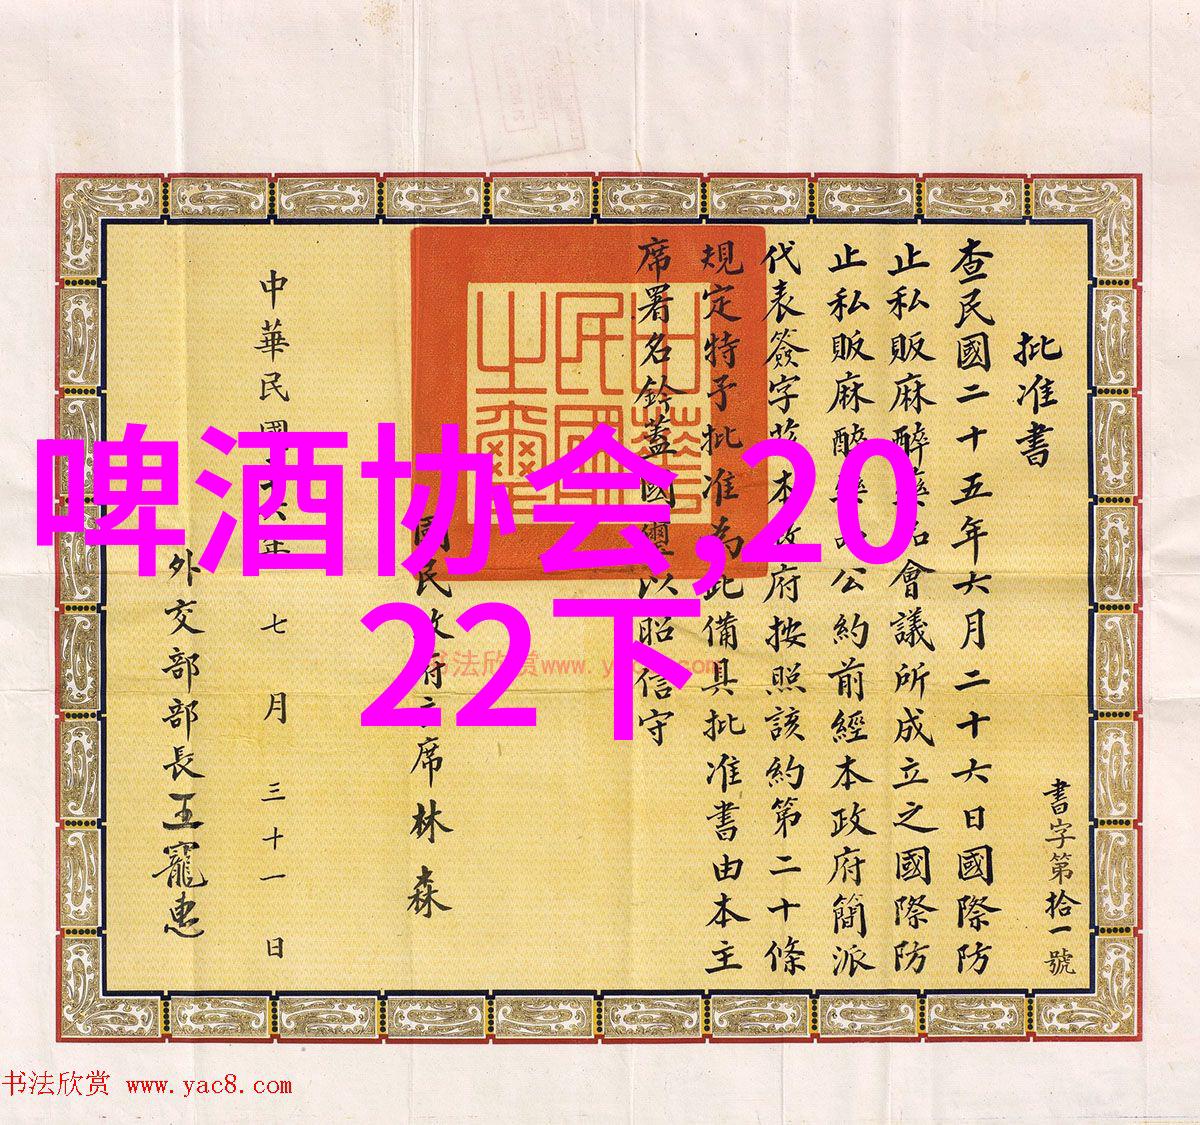 批准書
書字第拾一號
查民國二十五年六月二十六日國際防
止私販麻醉藥品會議所成立之國際防
止私販麻醉藥品公約前經本政府簡派
代表簽字茲本政府按照該約第二十條
規定特予批准為此備具批准書由本主
席署名鈐蓋國璽以昭信守
中華民國之璽
國民政府主席林森
中華民國二十六年七月三十一日
外交部部長王寵惠
啤酒协会,20
22下
书法欣赏www.y
书法欣赏 www.yac8.com